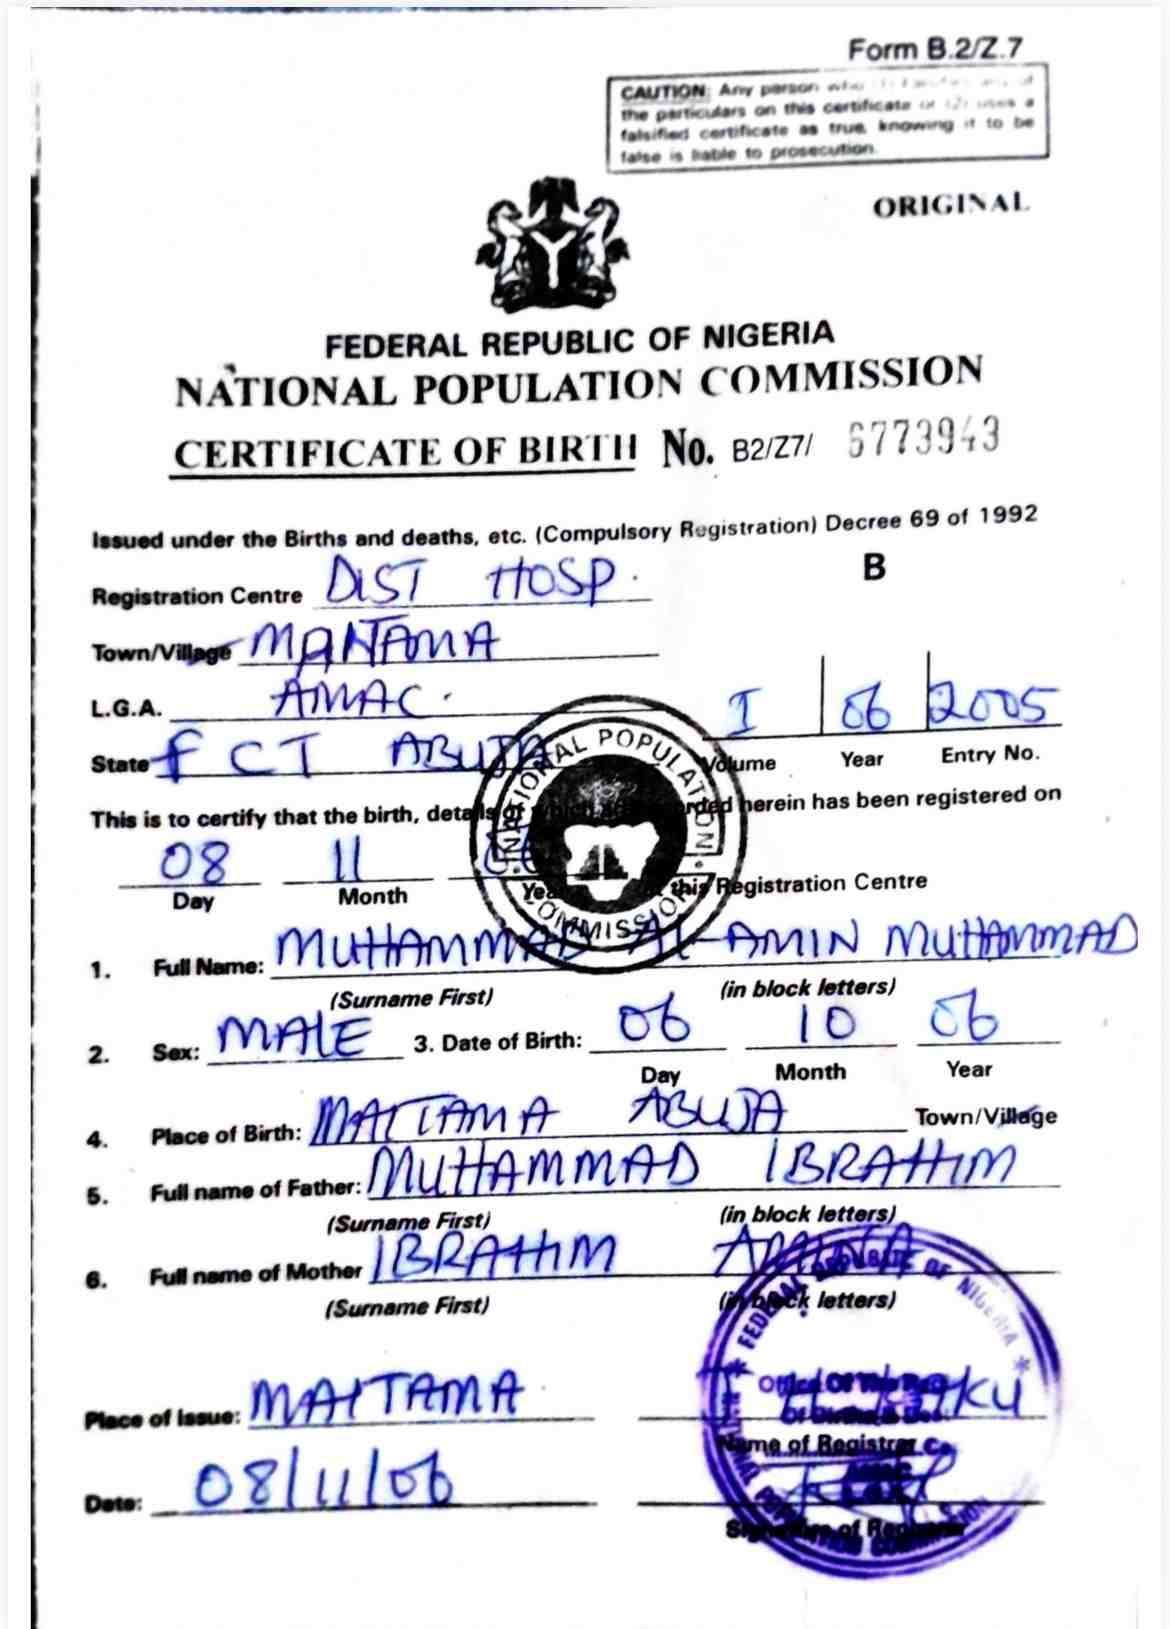 Form B.2/Z.7
CAUTION: Any person who
the particulars on this certificate or (2) uses a
falsified certificate as true, knowing it to be
false is liable to prosecution.
ORIGINAL
FEDERAL REPUBLIC OF NIGERIA
NATIONAL POPULATION COMMISSION
CERTIFICATE OF BIRTH No. B2/Z7/ 6773943
Issued under the Births and deaths, etc. (Compulsory Registration) Decree 69 of 1992
B
Registration Centre DIST HOSP.
Town/Village MAITAMA
L.G.A. AMAC.
I 06 2005
State FCT ABUJA
Volume Year Entry No.
NATIONAL POPULATION COMMISSION
This is to certify that the birth, details of which are recorded herein has been registered on
08 11
Day Month Year this Registration Centre
1. Full Name: MUHAMMAD AL-AMIN MUHAMMAD
(Surname First) (in block letters)
2. Sex: MALE 3. Date of Birth: 06 10 06
Day Month Year
4. Place of Birth: MAITAMA ABUJA Town/Village
5. Full name of Father: MUHAMMAD IBRAHIM
(Surname First) (in block letters)
6. Full name of Mother IBRAHIM AMINA
(Surname First) (in block letters)
FEDERAL REPUBLIC OF NIGERIA
Place of Issue: MAITAMA
Office Of The
Of Births &
Name of Registrar
AMAC
Date: 08/11/06
Signature of Registrar
POPULATION COMMISSION